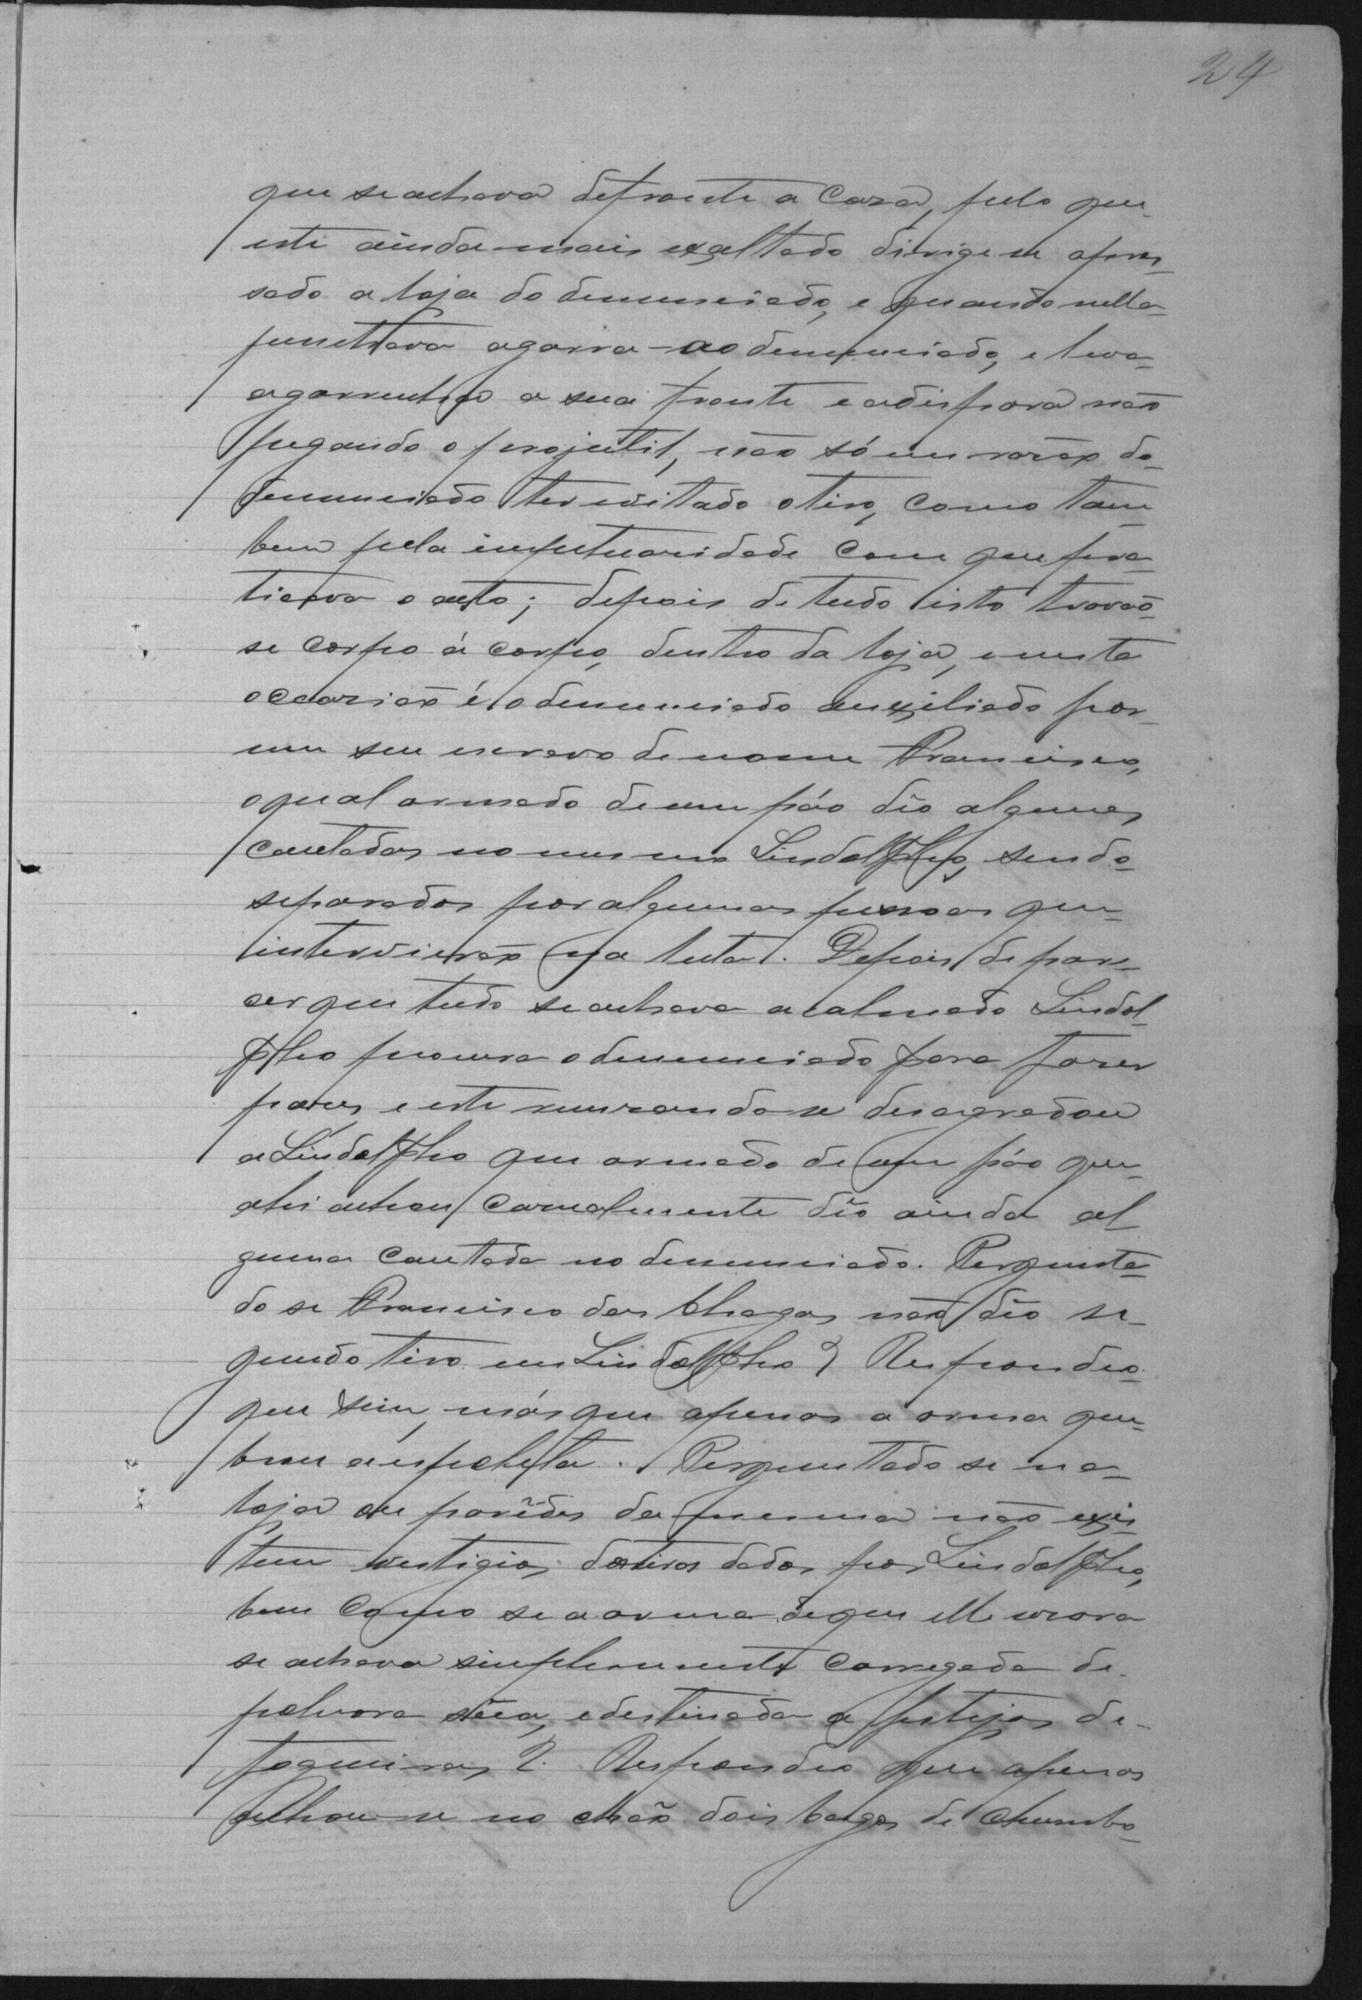 24
que se achava defronte a Caza, pelo que
este ainda mais exaltado dirige se apres-
sado a loja do denunciado, e quando nella
penetrava agarra-ao denunciado, e leva-
agarrent a sua frente e a dispara não
pegando o projectil, não só em rasão do
denunciado ter evitado o tiro, como tam
bem pela impetuosidade com que pra
ticava o acto; depois de tudo isto travão
se corpo á corpo, dentro da loja, e nesta
occasião é o denunciado auxiliado por
um seu escravo de nome Francisco,
o qual armado de um páo dêo algumas
cautadas no mesmo Lindolpho, sendo
separados por algumas pessoas que
intervierão na luta. Depois de pare
cer que tudo se achava acalmado Lindol
pho procura o denunciado para fazer
pazes e este recusando se desagradou
a Lindolpho que armado de um páo que
ahi achou casualmente dêo ainda al
guma cautada no denunciado. Pergunta
do se Francisco das Chagas não dêo se
gundo tiro em Lindolpho? Respondeo
que sim, más que apenas a arma que
brou a espoleta. Perguntado se na
loja ou parêdes da mesma não exis
tem vestigios dos tiros dados por Lindolpho,
bem como se a arma de que elle usava
se achava simplesmente carregada de
polvora sêca, e destinada a festejos de
fogueiras? Respondeo que apenas
achou-se no chão dois bagos de chumbo